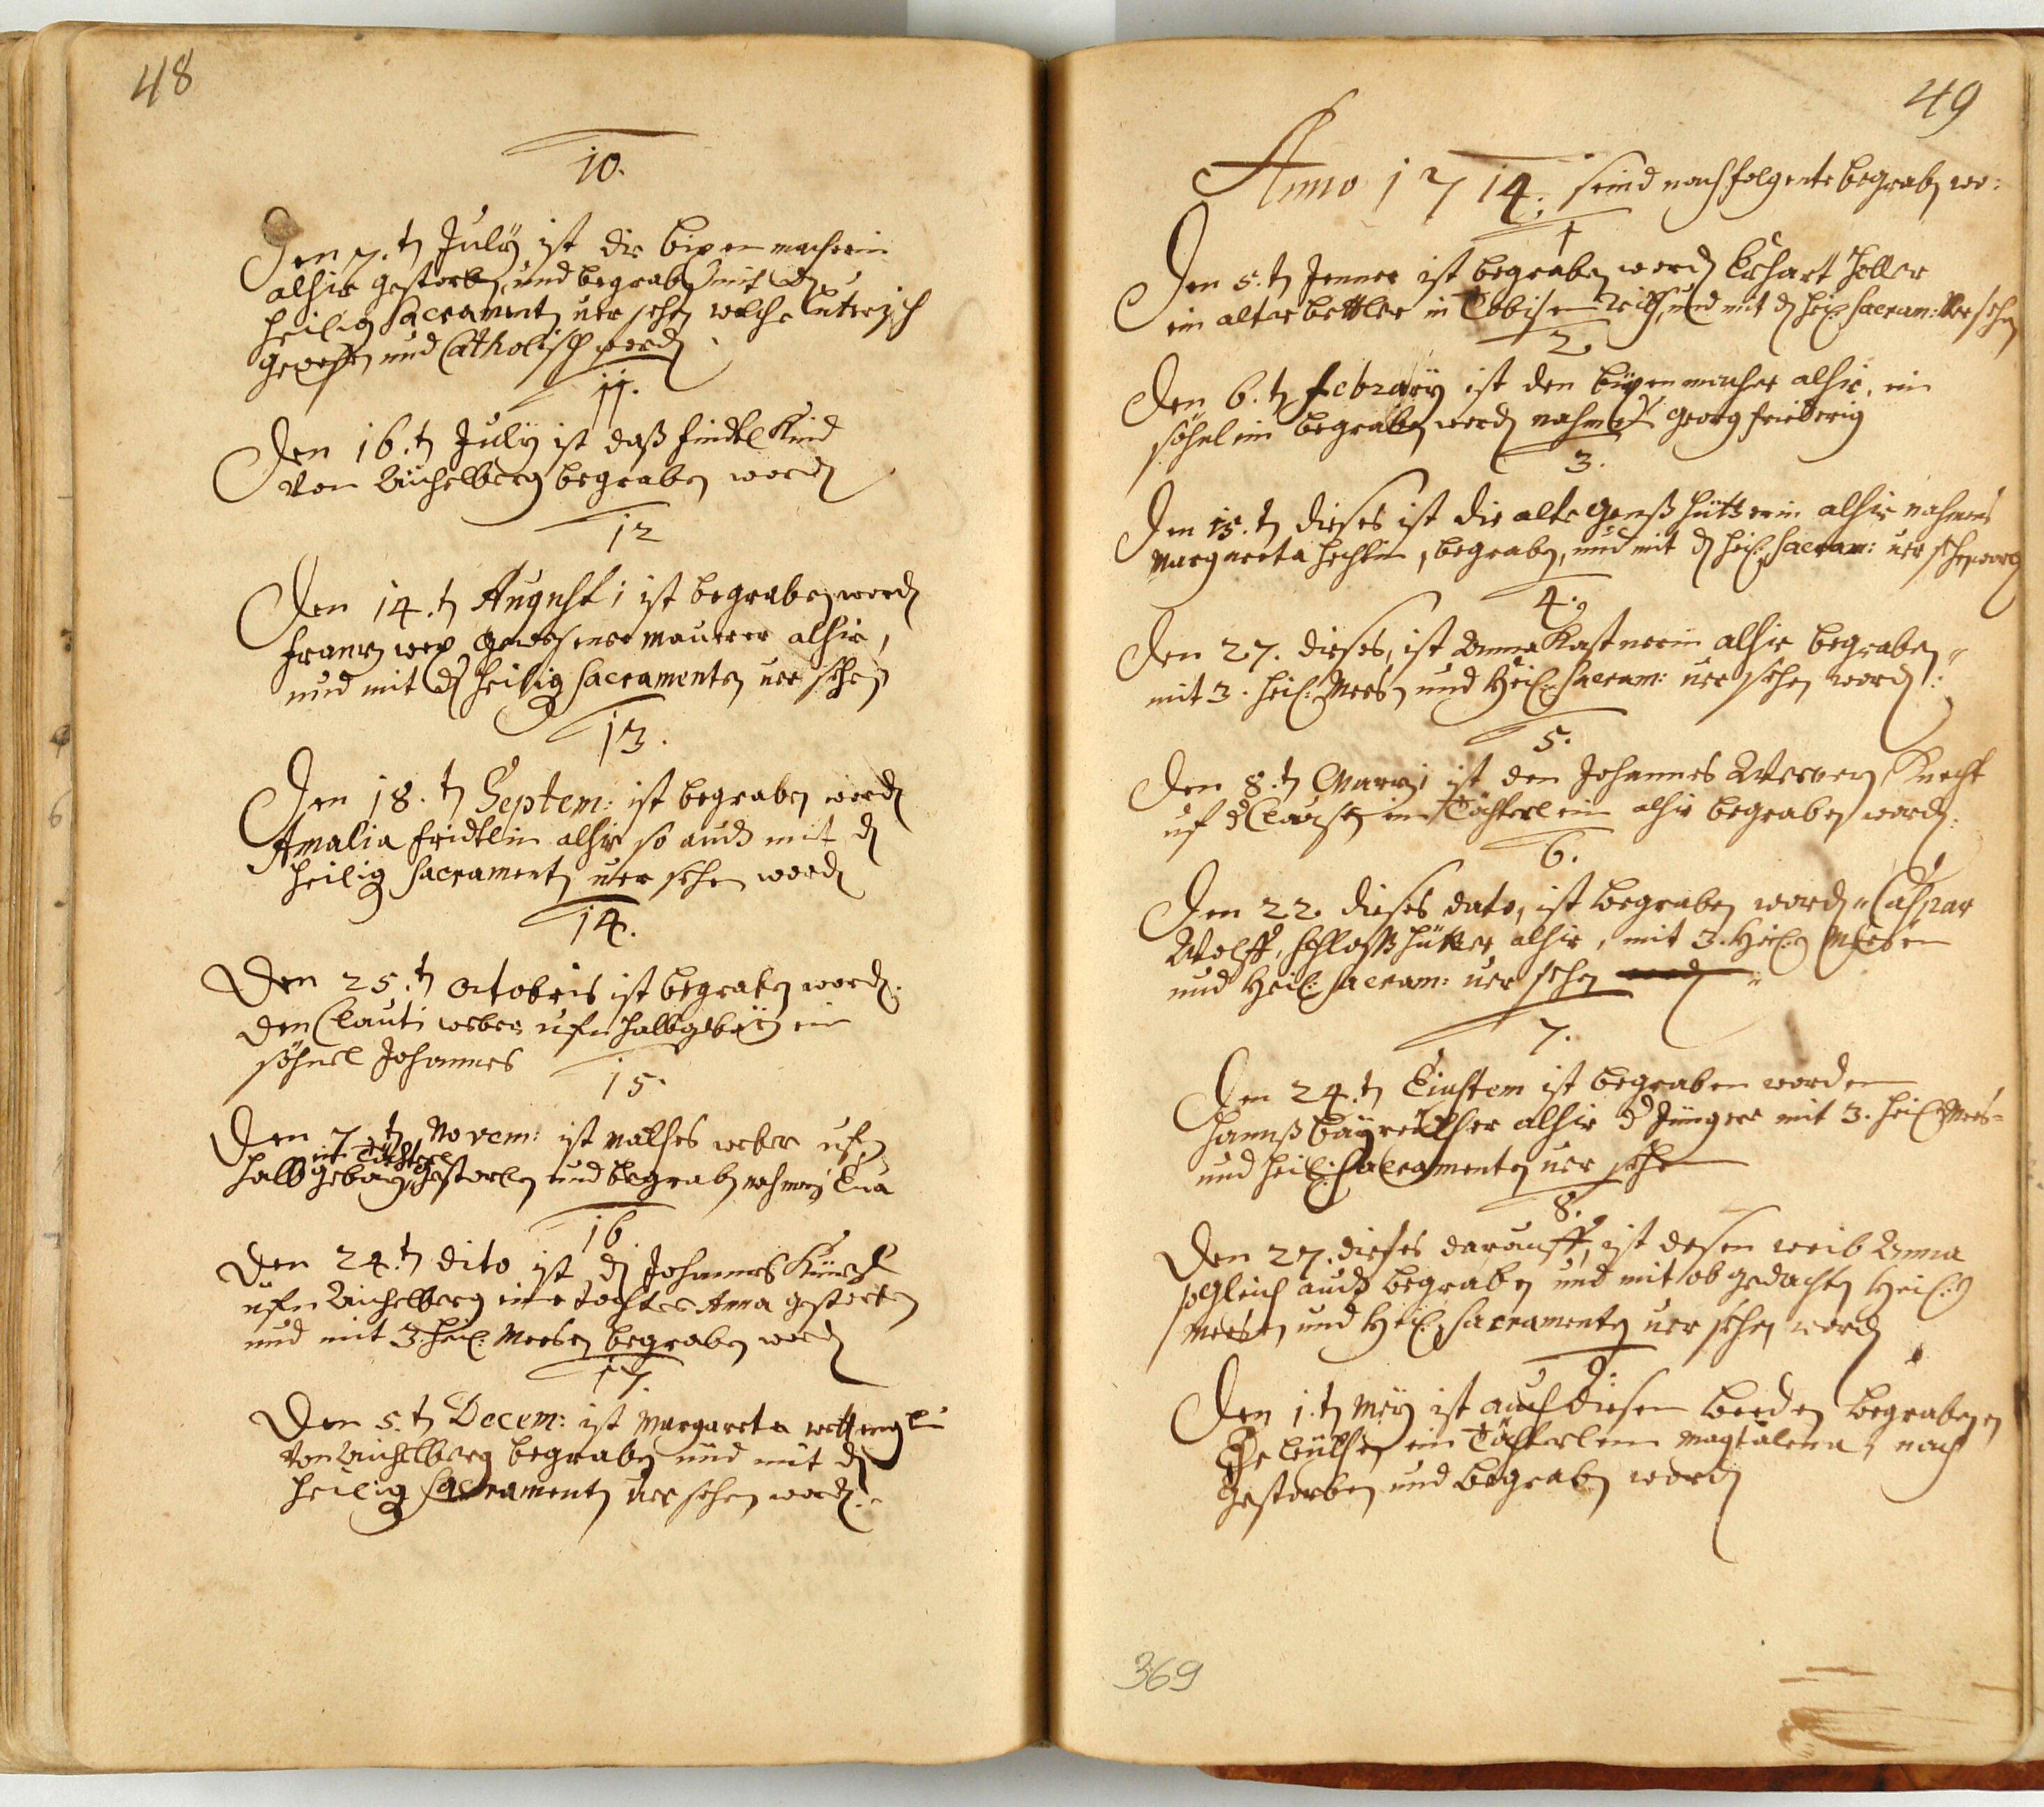 48
10.
Den 7.tn July ist die bixenmacherin
alhir gestorben, und begraben mit dn
heilig Sacramentn versehen welche Luterisch
gewessen und Catholisch wordn
11.
Den 16.tn July ist daß findel Kind
von Büchelberg begraben wordn
12
Den 14.tn Augusti ist begraben wordn
frantz gewesener Maurer alhir,
und mit dn heilig Sacramenten versehen
13.
Den 18.tn Septem: ist begraben wordn
Amalia fridtlin alhir so auch mit dn
heilig Sacramentn versehen wordn
14.
Den 25.tn octobris ist begraben wordn.
den Clauti weber ufn halbgebäy ein
söhnel Johannes
15.
Den 7.tn Novem: ist Mathes weber ufn
ein Töchterl
halb gebäy gestorben und begraben nahmens Eva
16
Den 24.tn dito ist dn Johannes
ufn Büchelberg eine tochter Anna gestorben
und mit 3. heil: Messen begraben wordn
17.
Den 5.tn Decem: ist Margareta wettenglin
von Büchelberg begraben und mit dn
heilig Sacramentn versehen wordn.
49
Anno 1714: seind nachfolgente begraben wo:
1
Den 5.tn Jenner ist begraben wordn Erhart Holler
ein alter bettler in und mit dn heil: Sacram: versehen
2
Den 6.tn february ist den bixenmacher alhir, ein
söhnlein begraben wordn nahmens georg friderig
3.
Den 15.tn dieses ist die alte ganß hütterin alhir nahmens
Margareta hechlin, begraben, und mit dn heil: Sacram: versehen wordn
4.
Den 27. dieses, ist Anna Kastnerin alhir begraben
mit 3. heil: Mesn und Heil: Sacram: versehen wordn:
5.
Den 8.tn Martzi ist den Johannes Knecht
uf d Clausen ein Töchterlein alhir begraben wordn.
6.
Den 22. dieses dato, ist begraben wordn Caspar
Wolff, schloßhütter alhir, mit 3. Heil: Mesen
und Heil: Sacram: versehen
7.
Den 24.tn Eiustem ist begraben worden
Hannß Bayreüther alhir d Jüngere mit 3. heil: Mes=
und heil: Sacramenten versehen
8.
Den 27. dieses darauff, ist desen weib Anna
so gleich auch begraben und mit ob gedachten Heil:
Mesen und Heil: Sacramenten versehen wordn
9.
Den 1.tn Mey ist auch diesen beeden begrabenen
Eheleüthen ein Töchterlein Magtalena, nach
gestorben und begraben wordn
369